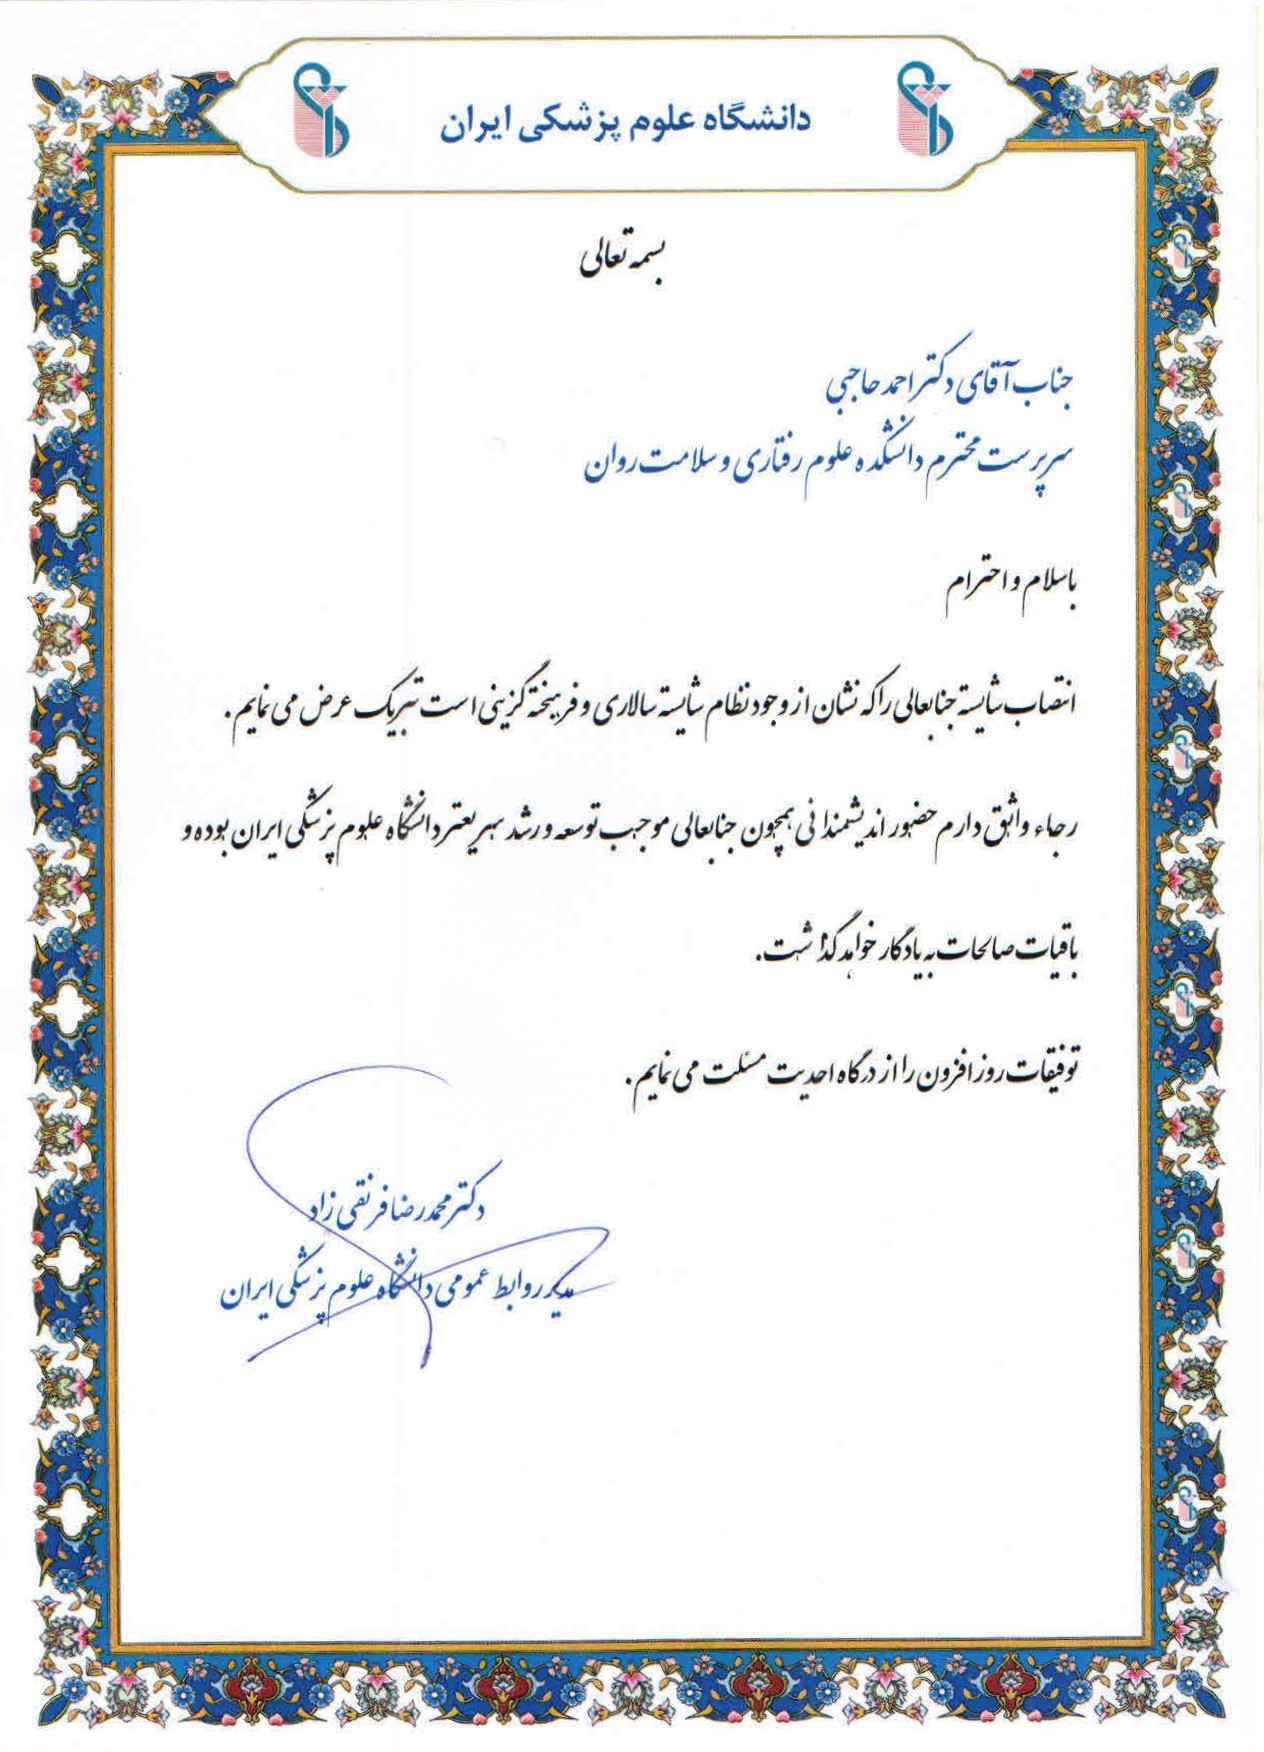 دانشگاه علوم پزشکی ایران
بسمه تعالی
جناب آقای دکتر احمد حاجبی
سرپرست محترم دانشکده علوم رفتاری و سلامت روان
باسلام و احترام
انتصاب شایسته جنابعالی را که نشان از وجود نظام شایسته سالاری و فرهیخته گزینی است تبریک عرض می نمایم.
رجاء واثق دارم حضور اندیشمندانی همچون جنابعالی موجب توسعه و رشد سریعتر دانشگاه علوم پزشکی ایران بوده و
باقیات صالحات به یادگار خواهد گذاشت.
توفیقات روزافزون را از درگاه احدیت مسئلت می نمایم.
دکتر محمدرضا فرنقی زاد
مدیر روابط عمومی دانشگاه علوم پزشکی ایران